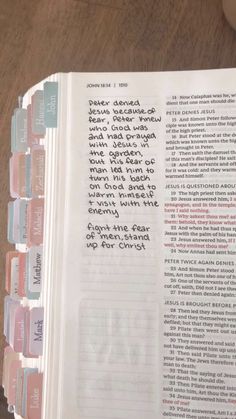 JOHN 18:14 | 1510
Peter denied
Jesus because of
fear, Peter knew
who God was
and had prayed
with Jesus in
the garden,
but his fear of
man led him to
turn his back
on God and to
warm himself
+ visit with the
enemy
fight the fear
of men, stand
up for Christ
14 Now Caiaphas was he, w
dient that one man should die
PETER DENIES JESUS
15 And Simon Peter follow
ciple was known unto the high
of the high priest.
16 But Peter stood at the d
which was known unto the high
and brought in Peter.
17 Then saith the damsel th
of this man's disciples? He sait
18 And the servants and off
for it was cold: and they warm
warmed himself.
JESUS IS QUESTIONED ABOUT
19 The high priest then aske
20 Jesus answered him, I s
synagogue, and in the temple,
have I said nothing.
21 Why askest thou me? as
them: behold, they know what
22 And when he had thus s
Jesus with the palm of his han
23 Jesus answered him, If I
well, why smitest thou me?
24 Now Annas had sent hi
PETER TWICE AGAIN DENIES
25 And Simon Peter stood
him, Art not thou also one of h
26 One of the servants of th
cut off, saith, Did not I see the
27 Peter then denied again:
JESUS IS BROUGHT BEFORE P
28 Then led they Jesus from
early; and they themselves we
defiled; but that they might ea
29 Pilate then went out un
against this man?
30 They answered and said
not have delivered him up unto
31 Then said Pilate unto th
your law. The Jews therefore s
man to death:
32 That the saying of Jesus
what death he should die.
33 Then Pilate entered into
said unto him, Art thou the Kin
34 Jesus answered him, Say
thee of me?
Malachi
Matthew
Mark
Luke